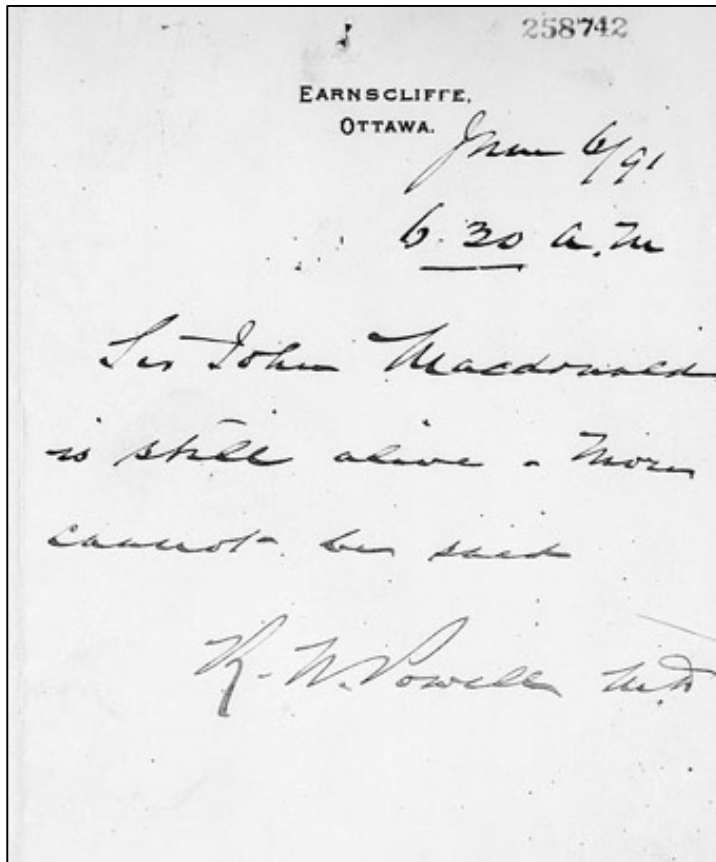 258742
EARNSCLIFFE,
OTTAWA.
June 6/91
6.30 a.m
Sir John Macdonald
is still alive - More
cannot be said
R. W. Powell M.D